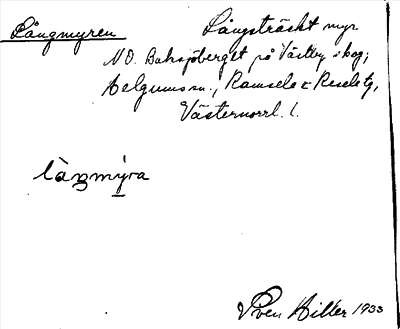 Långmyren
Långsträckt myr
NO. Baksjöberget på Västby skog;
Helgums sn., Ramsele & Resele tg,
Västernorrl. l.
làŋmỳra
Sven Hiller 1933